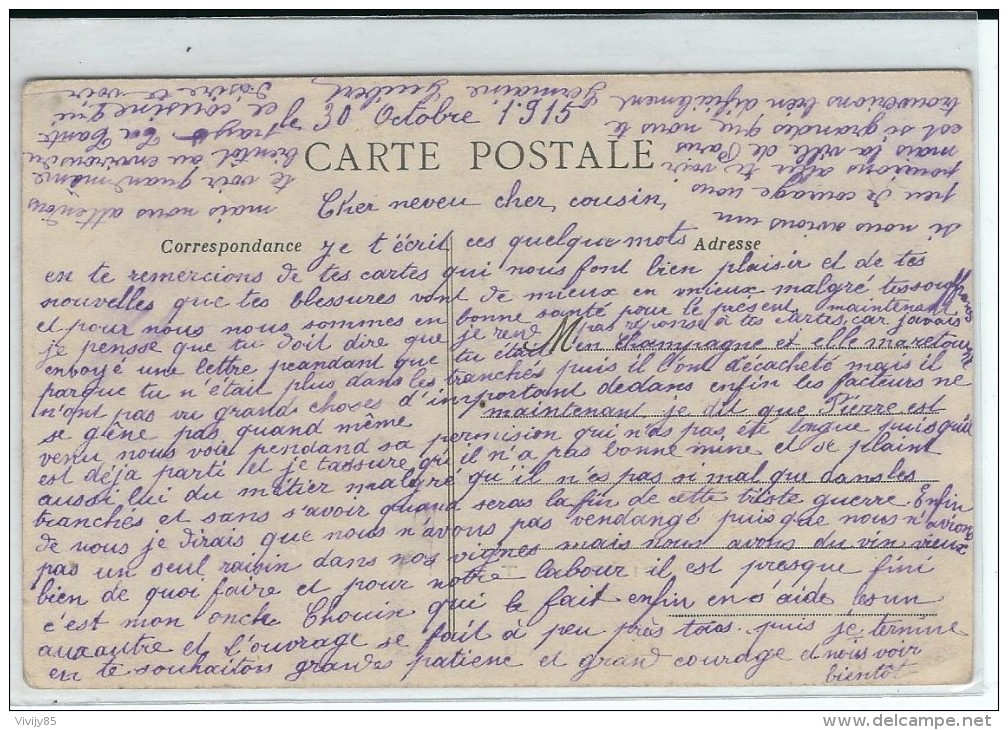 30 Octobre 1915
CARTE POSTALE
Cher neveu cher, cousin,
Correspondance
Adresse
je t'écrit ces quelque mots
en te remercions de tes cartes qui nous font bien plaisir et de tes
nouvelles que tes blessures vont de mieux en mieux malgré tes souffrances
et pour nous nous sommes en bonne santé pour le présent. maintenant
je pensse que tu doit dire que je rend pas réponse à tes cartes, car j'avais
envoyé une lettre pendant que tu était en champagne et elle ma retourné
parque tu n'était plus dans les tranchés puis il l'ont décacheté mais il
n'ont pas vu grand choses d'important dedans enfin les facteurs ne
se gêne pas, quand même maintenant je dit que Pierre est
venu nous voir pendand sa permision qui n'as pas été longue puisqu'il
est déja parti et je t'assure qu'il n'a pas bonne mine et se plaint
aussi lui du métier malgré qu'il n'es pas si mal que dans les
tranchés et sans s'avoir quand seras la fin de cette triste guerre. Enfin
de nous je dirais que nous n'avons pas vendangé puisque nous n'avions
pas un seul raisin dans nos vignes mais nous avons du vin vieux
bien de quoi faire et pour notre labour il est presque fini
c'est mon oncle Chouin qui le fait enfin en s'aide les un
aux autre et l'ouvrage se fait à peu près tous. puis je termine
en te souhaitons grande patience et grand courage et nous voir
bientôt
si nous avions un
peu de courage nous
pourrions aller te voir
mais la ville de Paris
est si grandes que nous te
trouverions bien dificilement
mais nous attendons
te voir quand même
bientôt au environs du
Ta Tante
et cousine qui
désire te voir
Germaine Guibert
Vivijy85
www.delcampe.net